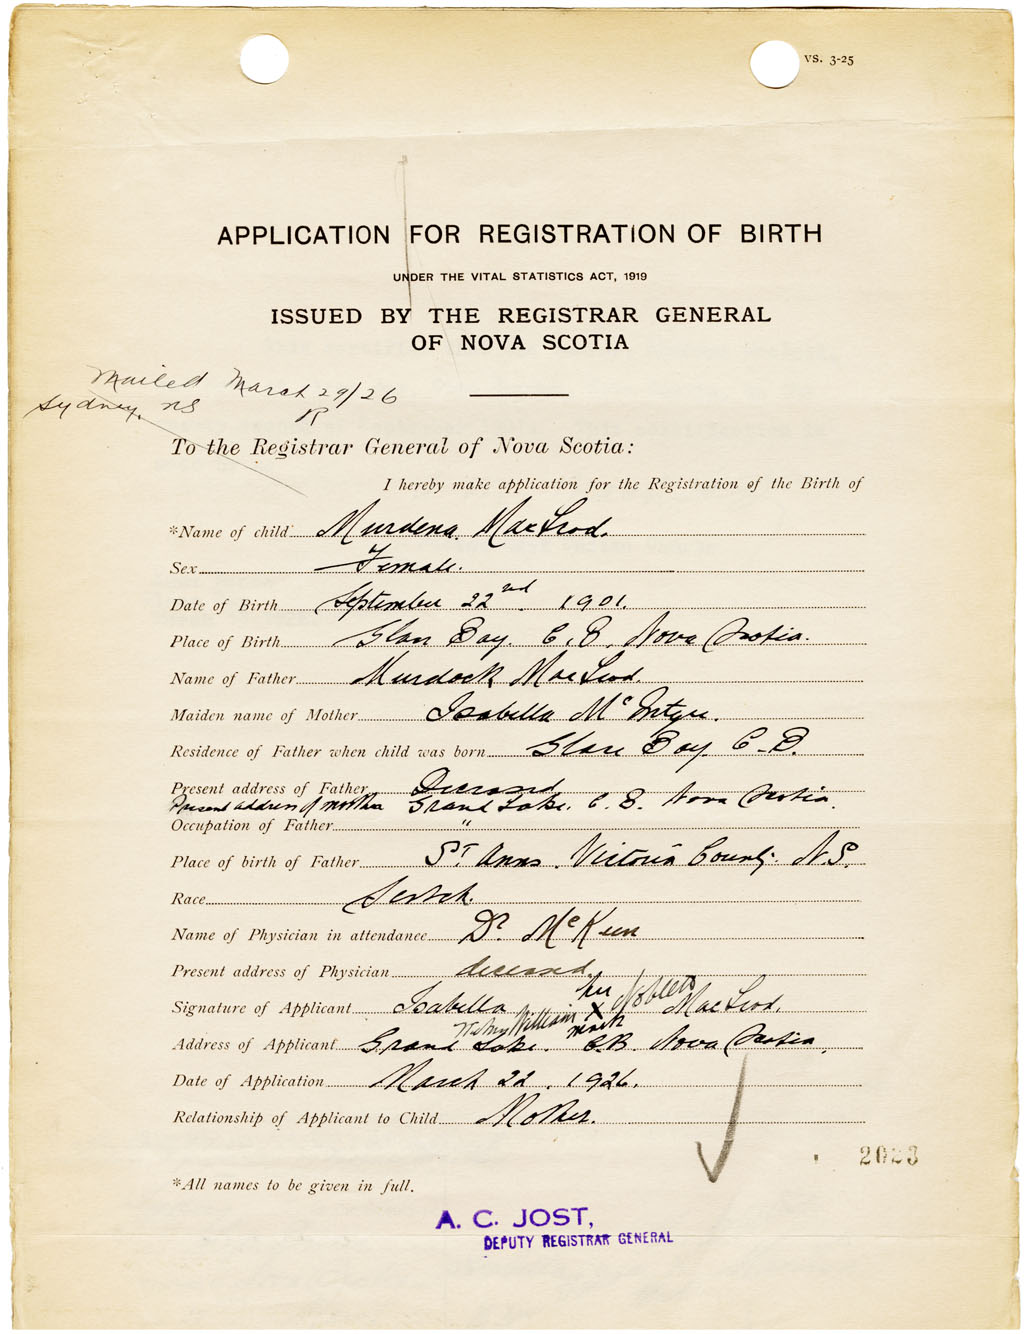 VS. 3-25
APPLICATION FOR REGISTRATION OF BIRTH
UNDER THE VITAL STATISTICS ACT, 1919
ISSUED BY THE REGISTRAR GENERAL
OF NOVA SCOTIA
Mailed March 29/26
Sydney, NS R
To the Registrar General of Nova Scotia:
I hereby make application for the Registration of the Birth of
*Name of child Murdena MacLeod.
Sex Female.
Date of Birth September 22nd. 1901.
Place of Birth Glace Bay. C.B. Nova Scotia.
Name of Father Murdock MacLeod
Maiden name of Mother Isabella McIntyre.
Residence of Father when child was born Glace Bay C-B.
Present address of Father Deceased
Present address of mother Grand Lake. C.B. Nova Scotia.
Occupation of Father "
Place of birth of Father St Anns. Victoria County. N.S.
Race Scotch.
Name of Physician in attendance Dr. McKeen
Present address of Physician deceased.
Signature of Applicant Isabella her X mark MacLeod.
William Nobletts
Address of Applicant Grand Lake. C.B. Nova Scotia.
Date of Application March 22. 1926.
Relationship of Applicant to Child Mother.
2023
*All names to be given in full.
A. C. JOST,
DEPUTY REGISTRAR GENERAL